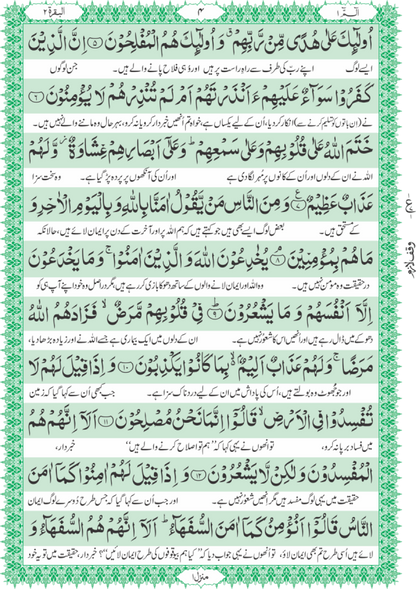 البقرة ۲
۴
الٓمّٓ ۱
اُولٰٓئِكَ عَلٰى هُدًى مِّنْ رَّبِّهِمْ ۗ وَ اُولٰٓئِكَ هُمُ الْمُفْلِحُوْنَ ۝۵ اِنَّ الَّذِيْنَ
ایسے لوگ اپنے رب کی طرف سے راہِ راست پر ہیں اور وہی فلاح پانے والے ہیں۔ جن لوگوں
كَفَرُوْا سَوَآءٌ عَلَيْهِمْ ءَاَنْذَرْتَهُمْ اَمْ لَمْ تُنْذِرْهُمْ لَا يُؤْمِنُوْنَ ۝۶
نے (ان باتوں کو تسلیم کرنے سے) انکار کر دیا، اُن کے لیے یکساں ہے، خواہ تم اُنھیں خبردار کرو یا نہ کرو، بہرحال وہ ماننے والے نہیں ہیں۔
خَتَمَ اللّٰهُ عَلٰى قُلُوْبِهِمْ وَعَلٰى سَمْعِهِمْ ؕ وَعَلٰٓى اَبْصَارِهِمْ غِشَاوَةٌ ۫ وَّ لَهُمْ
اللہ نے ان کے دلوں اور ان کے کانوں پر مُہر لگا دی ہے اور اُن کی آنکھوں پر پردہ پڑ گیا ہے۔ وہ سخت سزا
عَذَابٌ عَظِيْمٌ ۝۷ وَمِنَ النَّاسِ مَنْ يَّقُوْلُ اٰمَنَّا بِاللّٰهِ وَ بِالْيَوْمِ الْاٰخِرِ وَ
کے مستحق ہیں۔ بعض لوگ ایسے بھی ہیں جو کہتے ہیں کہ ہم اللہ پر اور آخرت کے دن پر ایمان لائے ہیں، حالانکہ
مَا هُمْ بِمُؤْمِنِيْنَ ۝۸ يُخٰدِعُوْنَ اللّٰهَ وَ الَّذِيْنَ اٰمَنُوْا ۚ وَ مَا يَخْدَعُوْنَ
درحقیقت وہ مومن نہیں ہیں۔ وہ اللہ اور ایمان لانے والوں کے ساتھ دھوکا بازی کر رہے ہیں، مگر دراصل وہ خود اپنے آپ ہی کو
اِلَّاۤ اَنْفُسَهُمْ وَ مَا يَشْعُرُوْنَ ۝۹ فِيْ قُلُوْبِهِمْ مَّرَضٌ ۙ فَزَادَهُمُ اللّٰهُ
دھوکے میں ڈال رہے ہیں اور انھیں اس کا شعور نہیں ہے۔ ان کے دلوں میں ایک بیماری ہے جسے اللہ نے اور زیادہ بڑھا دیا،
مَرَضًا ۚ وَ لَهُمْ عَذَابٌ اَلِيْمٌ ۙ بِمَا كَانُوْا يَكْذِبُوْنَ ۝۱۰ وَ اِذَا قِيْلَ لَهُمْ لَا
اور جو جھوٹ وہ بولتے ہیں، اُس کی پاداش میں ان کے لیے دردناک سزا ہے۔ جب کبھی اُن سے کہا گیا کہ زمین
تُفْسِدُوْا فِي الْاَرْضِ ۙ قَالُوْۤا اِنَّمَا نَحْنُ مُصْلِحُوْنَ ۝۱۱ اَلَاۤ اِنَّهُمْ هُمُ
میں فساد برپا نہ کرو، تو اُنھوں نے یہی کہا کہ ”ہم تو اصلاح کرنے والے ہیں“ خبردار،
الْمُفْسِدُوْنَ وَ لٰكِنْ لَّا يَشْعُرُوْنَ ۝۱۲ وَ اِذَا قِيْلَ لَهُمْ اٰمِنُوْا كَمَاۤ اٰمَنَ
حقیقت میں یہی لوگ مفسد ہیں مگر انھیں شعور نہیں ہے۔ اور جب اُن سے کہا گیا کہ جس طرح دُوسرے لوگ ایمان
النَّاسُ قَالُوْۤا اَنُؤْمِنُ كَمَاۤ اٰمَنَ السُّفَهَآءُ ؕ اَلَاۤ اِنَّهُمْ هُمُ السُّفَهَآءُ وَ
لائے ہیں اُسی طرح تم بھی ایمان لاؤ، تو اُنھوں نے یہی جواب دیا کہ ”کیا ہم بیوقوفوں کی طرح ایمان لائیں“؟ خبردار، حقیقت میں تو یہ خود
وقف لازم
منزل ۱